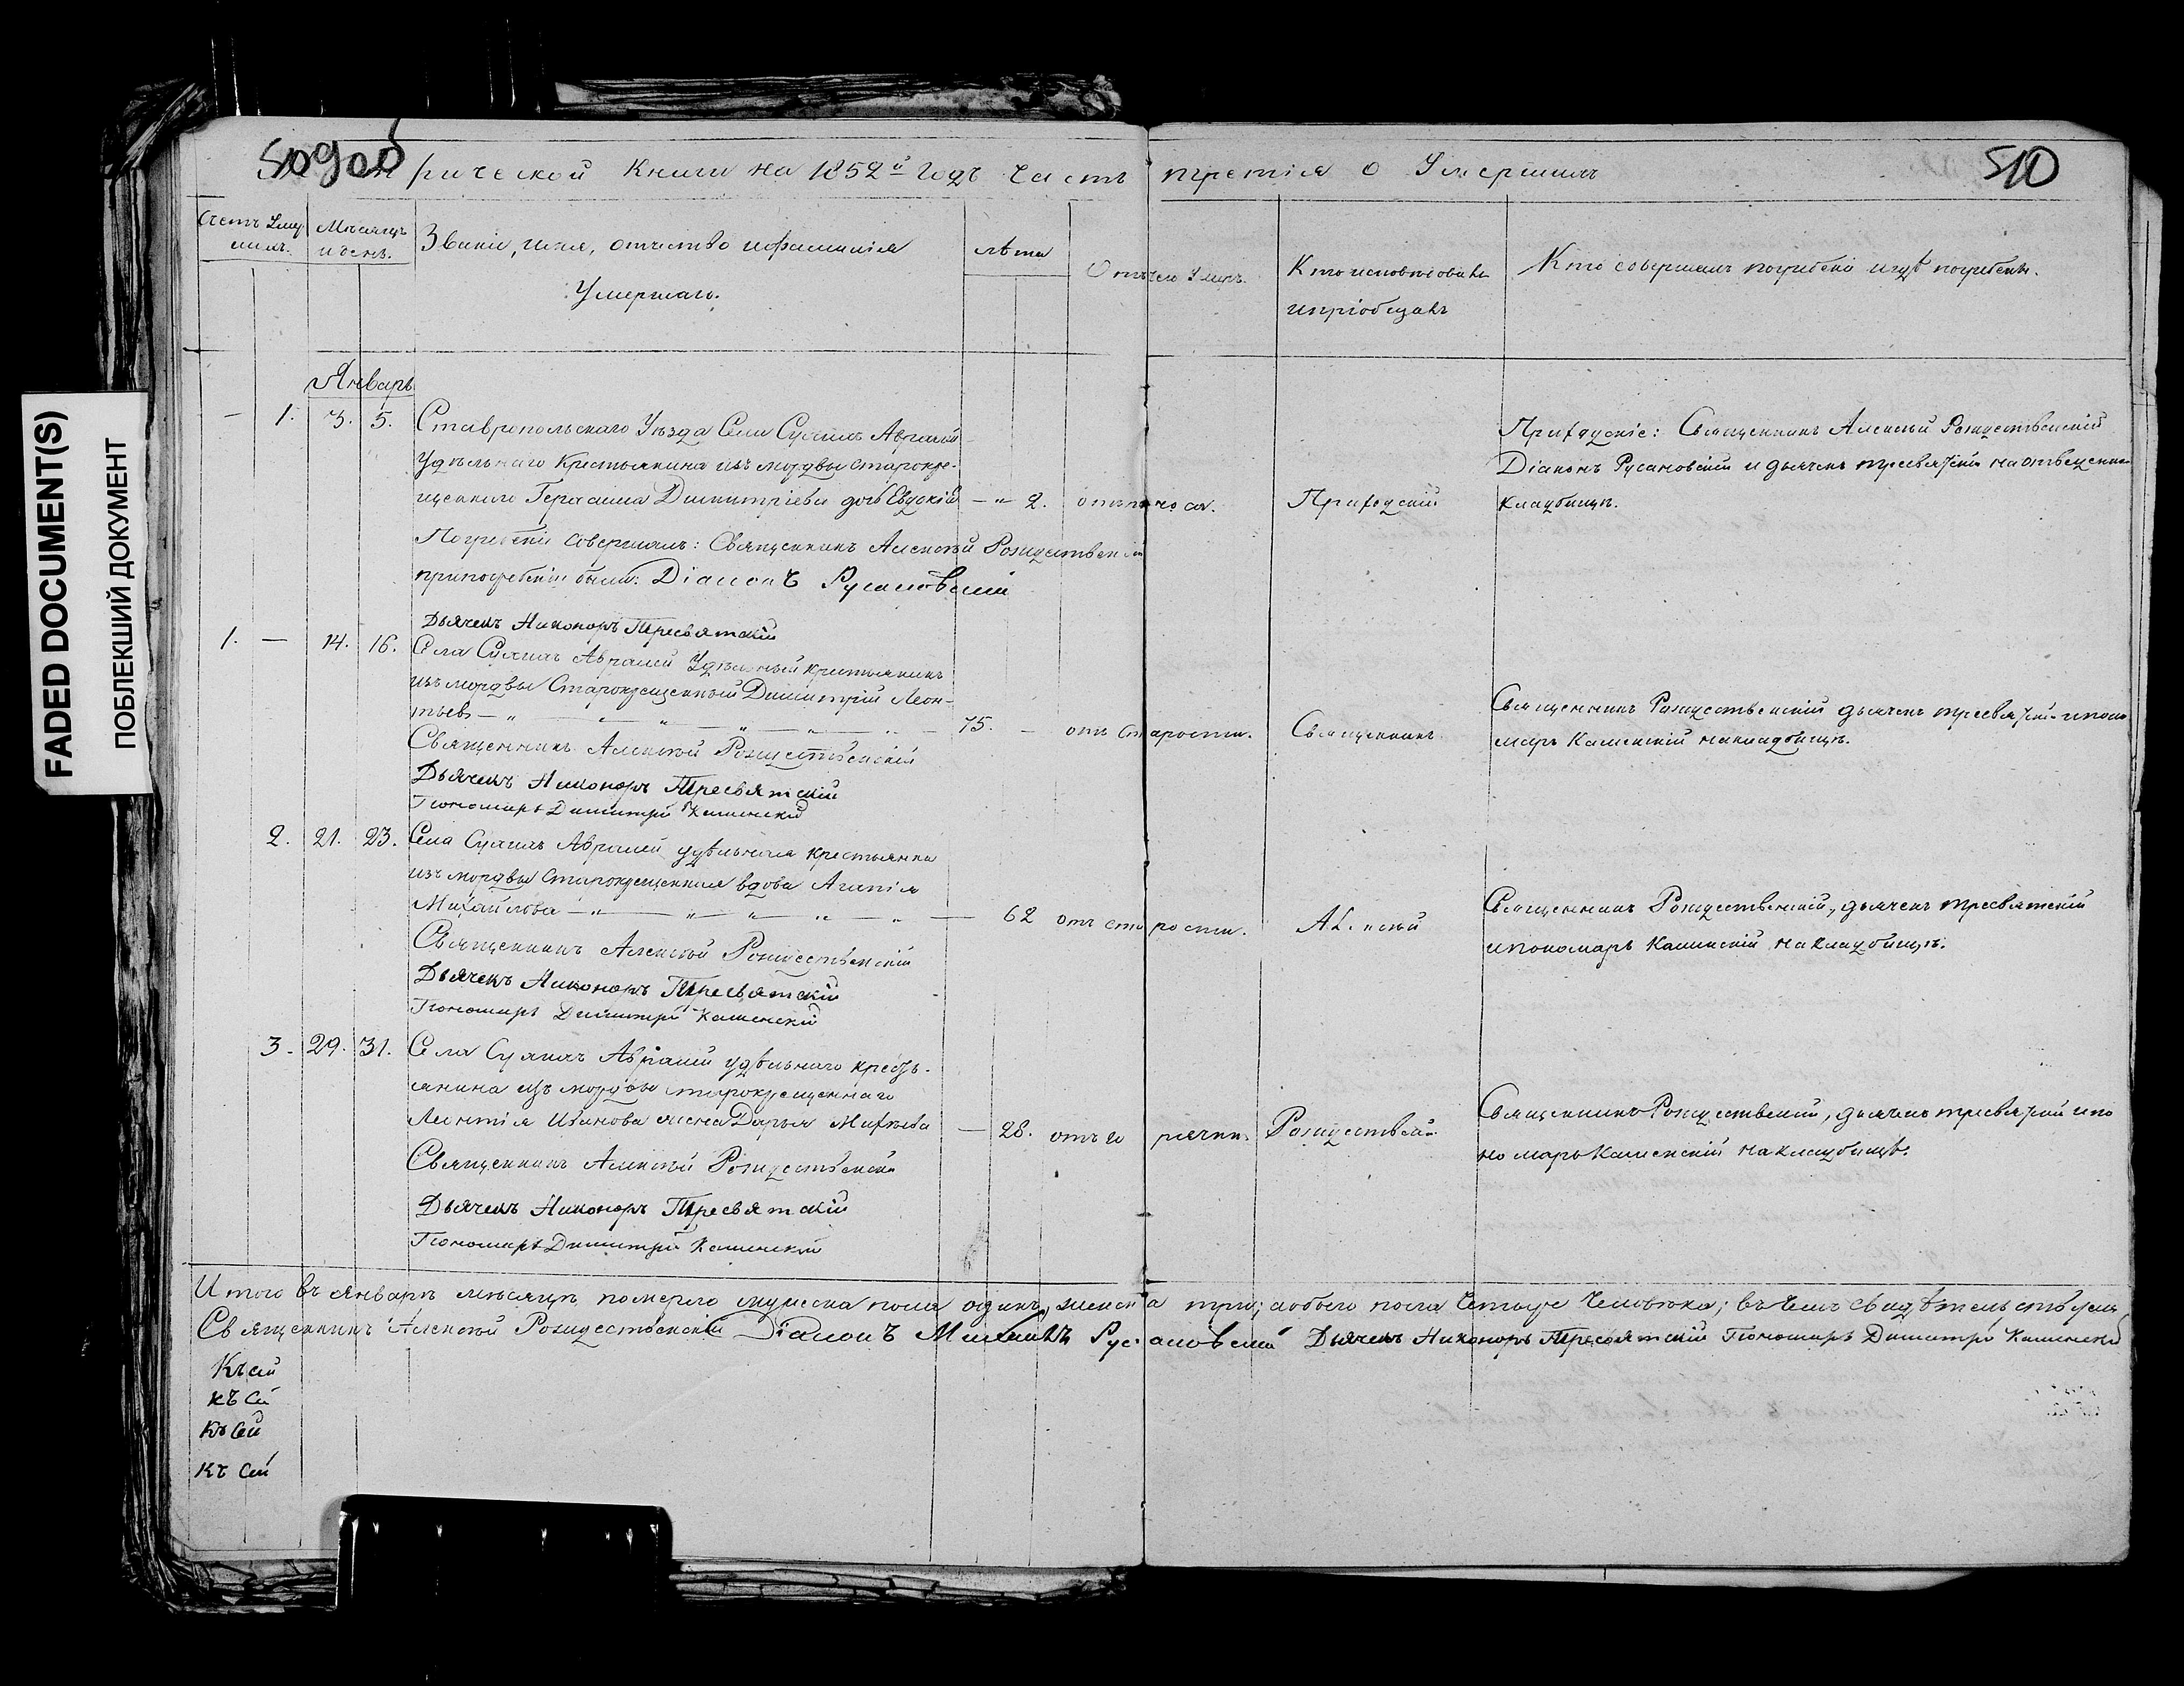 509об
510
рической Книги на 1852й Годъ Часть третія о Умершихъ
Счетъ Умер
шихъ.
Мѣсяцъ
и день.
Званіе, имя, отчество и фамилія
Умершаго.
лѣта
Отъ чего Умеръ.
Кто исповѣдовалъ
и пріобщалъ
Кто совершалъ погребеніе и гдѣ погребены.
Январь
— 1. 3. 5. Ставропольскаго Уѣзда Села Авралей
Удѣльнаго Крестьянина изъ мордвы старокре-
щеннаго Герасима Димитріева дочь Евдокія — " 2. отъ поноса. Приходскій
Приходскіе: Священникъ Алексѣй Рождественскій
Діаконъ Русановскій и дьячекъ Тресвятскій на отведенномъ
Кладбищѣ.
Погребеніе совершалъ: Священникъ Алексѣй Рождественскій
при погребеніи были: Діаконъ Русановскій
Дьячекъ Никоноръ Тресвятскій
1. — 14. 16. Села Авралей Удѣльный крестьянинъ
изъ мордвы Старокрещенный Димитрій Леон-
тьевъ — " — " — " — " — 75. — отъ старости. Священникъ
Священникъ Рождественскій дьячекъ Тресвятскій и поно
марь Каменскій на кладбищѣ.
Священникъ Алексѣй Рождественскій
Дьячекъ Никоноръ Тресвятскій
Пономарь Димитрій Каменскій
2. 21. 23. Села Авралей удѣльная крестьянка
изъ мордвы Старокрещенная вдова Агапія
Михайлова — " — " — " — " — 62 отъ старости. Алексѣй
Священникъ Рождественскій, дьячекъ Тресвятскій
и пономарь Каменскій на кладбищѣ.
Священникъ Алексѣй Рождественскій
Дьячекъ Никоноръ Тресвятскій
Пономарь Димитрій Каменскій
3. 29. 31. Села Авралей удѣльнаго кресть-
янина изъ мордвы старокрещеннаго
Леонтія Иванова жена Дарья — 28. отъ горячки. Рождественскій
Священникъ Рождественскій, дьячекъ Тресвятскій и по
номарь Каменскій на кладбищѣ.
Священникъ Алексѣй Рождественскій
Дьячекъ Никоноръ Тресвятскій
Пономарь Димитрій Каменскій
Итого въ январѣ мѣсяцѣ померло мужеска пола одинъ, женска три; а обоего пола четыре человѣка; въ чемъ свидѣтельствуемъ
Священникъ Алексѣй Рождественскій Діаконъ Михаилъ Русановскій Дьячекъ Никоноръ Тресвятскій Пономарь Димитрій Каменскій
Къ сей
Къ сей
Къ сей
Къ сей
FADED DOCUMENT(S)
ПОБЛЕКШИЙ ДОКУМЕНТ